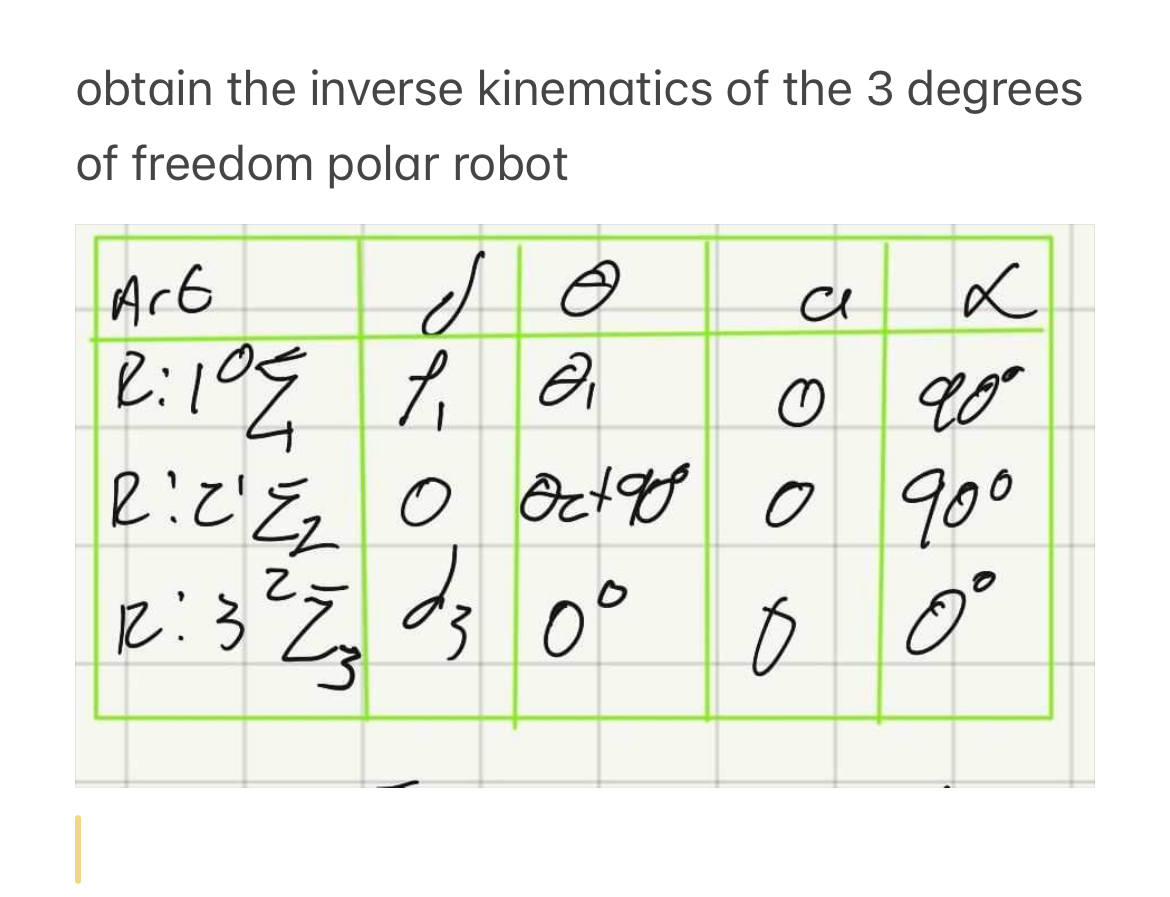 obtain the inverse kinematics of the 3 degrees
of freedom polar robot
Art d θ a α
R:1 ⁰Σ₁ l₁ θ₁ 0 90°
R:2 ¹Σ₂ 0 θ₂+90° 0 90°
R:3 ²Σ₃ d₃ 0° 0 0°